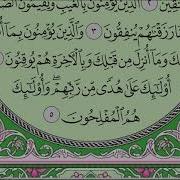 ٱلَّذِينَ يُؤْمِنُونَ بِٱلْغَيْبِ وَيُقِيمُونَ
رَزَقْنَٰهُمْ يُنفِقُونَ ٣ وَٱلَّذِينَ يُؤْمِنُونَ بِمَآ
وَمَآ أُنزِلَ مِن قَبْلِكَ وَبِٱلْءَاخِرَةِ هُمْ يُوقِنُونَ
أُو۟لَٰٓئِكَ عَلَىٰ هُدًى مِّن رَّبِّهِمْ ۖ وَأُو۟لَٰٓئِكَ
هُمُ ٱلْمُفْلِحُونَ ٥